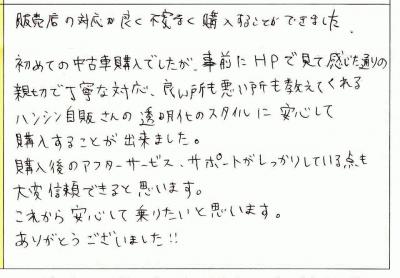 販売店の対応が良く不安なく購入することができました。
初めての中古車購入でしたが、事前にHPで見て感じた通りの
親切で丁寧な対応、良い所も悪い所も教えてくれる
ハンシン自販さんの透明化のスタイルに安心して
購入することが出来ました。
購入後のアフターサービス、サポートがしっかりしている点も
大変信頼できると思います。
これから安心して乗りたいと思います。
ありがとうございました!!